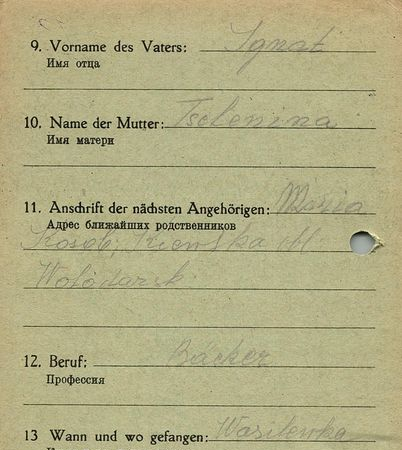 9. Vorname des Vaters: Ignat
Имя отца
10. Name der Mutter: Tschenina
Имя матери
11. Anschrift der nächsten Angehörigen: Maria
Адрес ближайших родственников
Wolodarsk
12. Beruf: Bäcker
Профессия
13 Wann und wo gefangen: Wasilewka